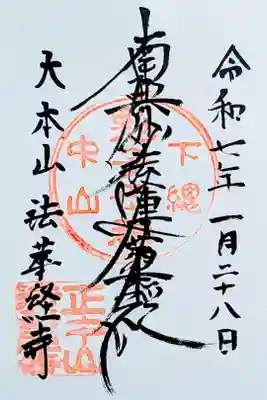 令和七年一月二十八日
南無妙法蓮華経
大本山法華経寺
下總
中山
正中山